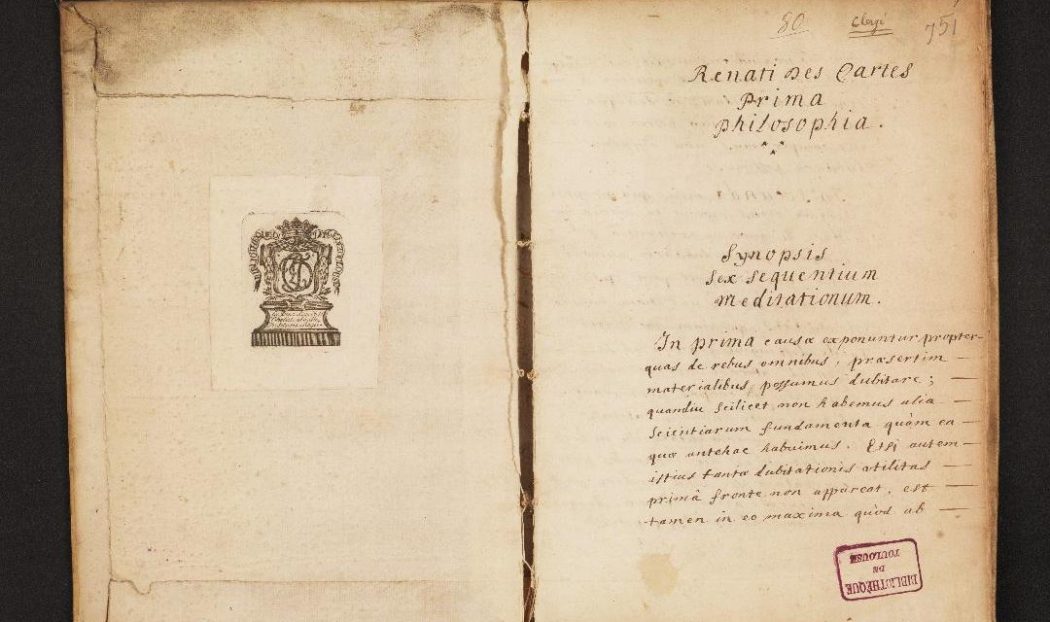 80
Clergé
751
Renati Des Cartes
Prima
Philosophia.
Synopsis
sex sequentium
meditationum.
In prima causæ exponuntur, propter-
quas de rebus omnibus, præsertim —
materialibus possumus dubitare; —
quandiu scilicet non habemus alia —
scientiarum fundamenta quàm ea —
quæ antehac habuimus. Etsi autem —
istius tantæ dubitationis utilitas —
primâ fronte non appareat, est —
tamen in eo maxima quòd ab —
BIBLIOTHÈQUE
DE
TOULOUSE